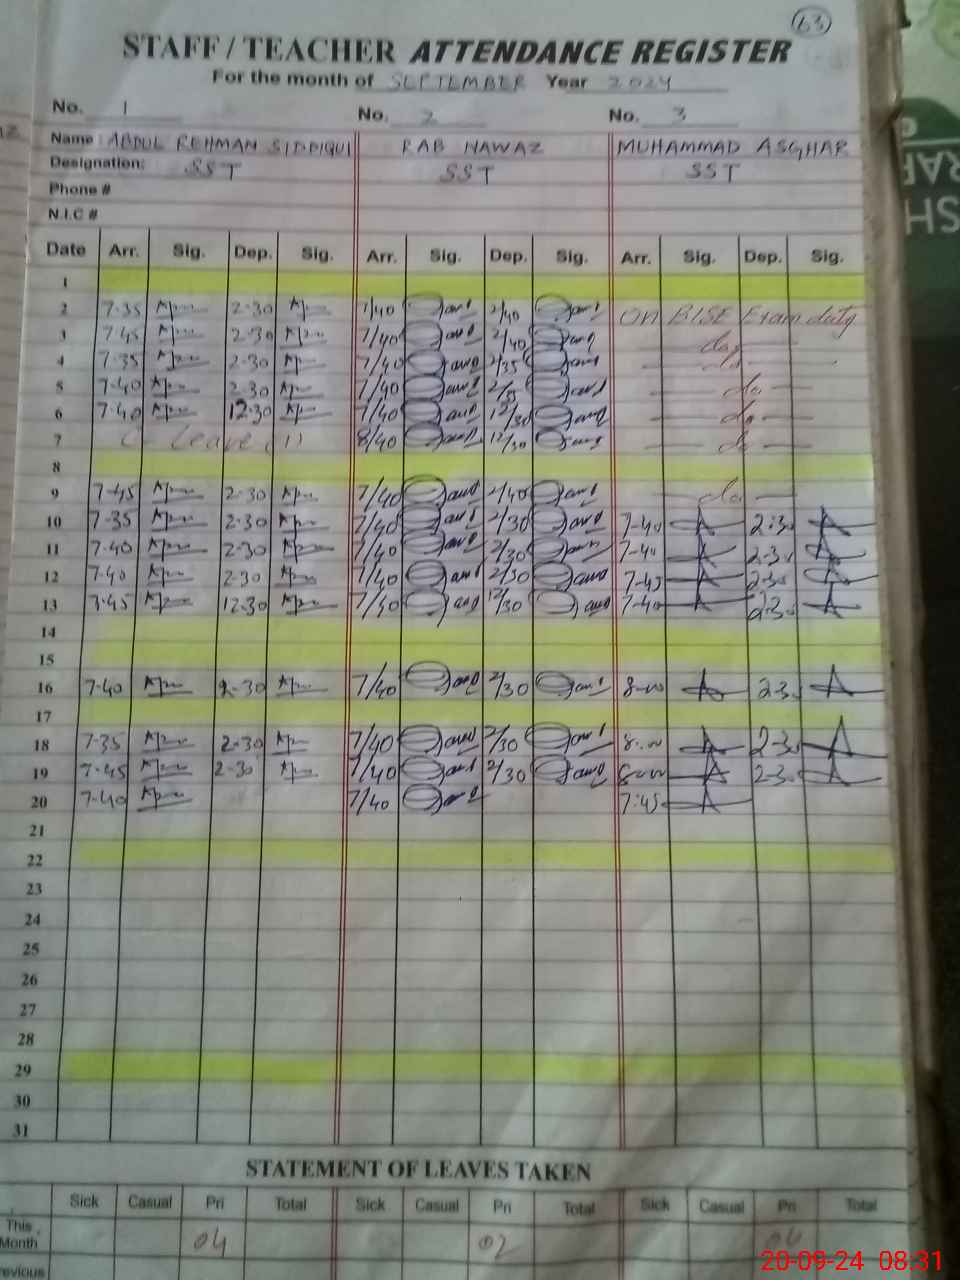 63
STAFF / TEACHER ATTENDANCE REGISTER
For the month of SEPTEMBER Year 2024
No. 1 No. 2 No. 3
Name : ABDUL REHMAN SIDDIQUI RAB NAWAZ MUHAMMAD ASGHAR
Designation: SST SST SST
Phone #
N.I.C #
Date Arr. Sig. Dep. Sig. Arr. Sig. Dep. Sig. Arr. Sig. Dep. Sig.
1
2 7-35 2-30 7/40 2/40 On BISE Exam duty
3 7-45 2-30 7/40 2/40 do
4 7-35 2-30 7/40 2/35 do
5 7-40 2-30 7/40 2/35 do
6 7-40 12-30 7/40 12/30 do
7 C- Leave (1) 8/40 12/30 do
8
9 7-45 2-30 7/40 2/40 do
10 7-35 2-30 7/40 2/30 7-40 2-30
11 7-40 2-30 7/40 2/30 7-40 2-30
12 7-40 2-30 7/40 2/30 7-45 2-30
13 7-45 12-30 7/30 12/30 7-40 2-30
14
15
16 7-40 2-30 7/40 2/30 8-00 2-30
17
18 7-35 2-30 7/40 2/30 8-00 2-30
19 7-45 2-30 7/40 2/30 8-00 2-30
20 7-40 7/40 7-45
21
22
23
24
25
26
27
28
29
30
31
STATEMENT OF LEAVES TAKEN
Sick Casual Pri Total Sick Casual Pri Total Sick Casual Pri Total
This Month 04 02 04
20-09-24 08:31